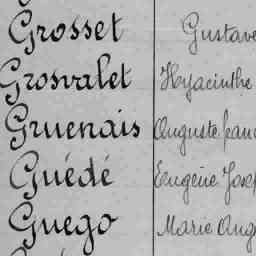 Grosset Gustave
Grosvalet Hyacinthe
Gruenais Auguste
Guédé Eugène
Guego Marie